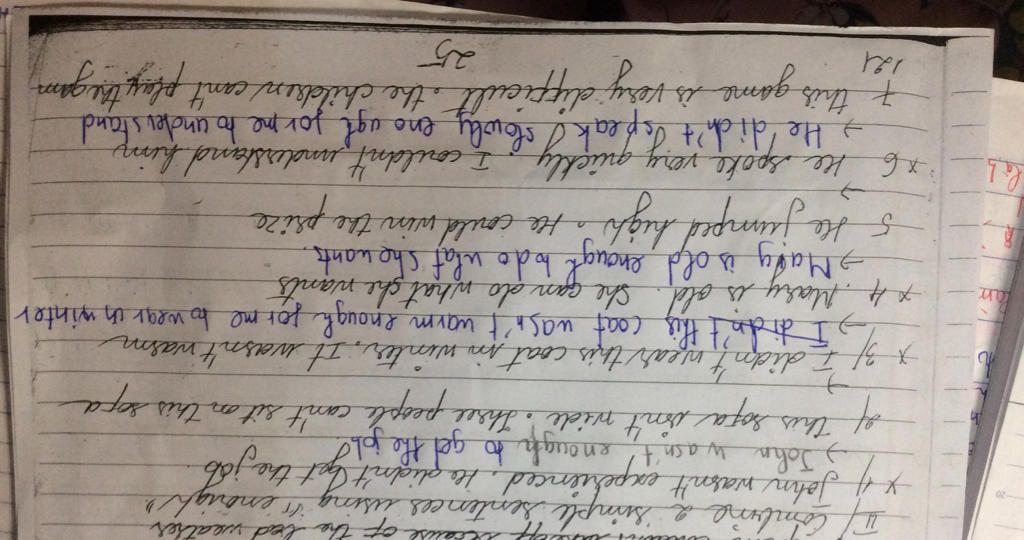 because of the bad weather
II/ Combine 2 simple sentences using "enough"
x 1/ John wasn't experienced. He didn't get the job.
→ John wasn't enough to get the job
2/ This sofa isn't wide. Three people can't sit on this sofa
→
x 3/ I didn't wear this coat in winter. It wasn't warm
→ I didn't this coat wasn't warm enough for me to wear in winter
x 4. Mary is old. She can do what she wants
→ Mary is old enough to do what she wants.
5 He jumped high. He could win the prize
→
x 6 He spoke very quickly I couldn't understand him
→ He didn't speak slowly enough for me to understand
7 this game is very difficult. the children can't play the gam
121
25